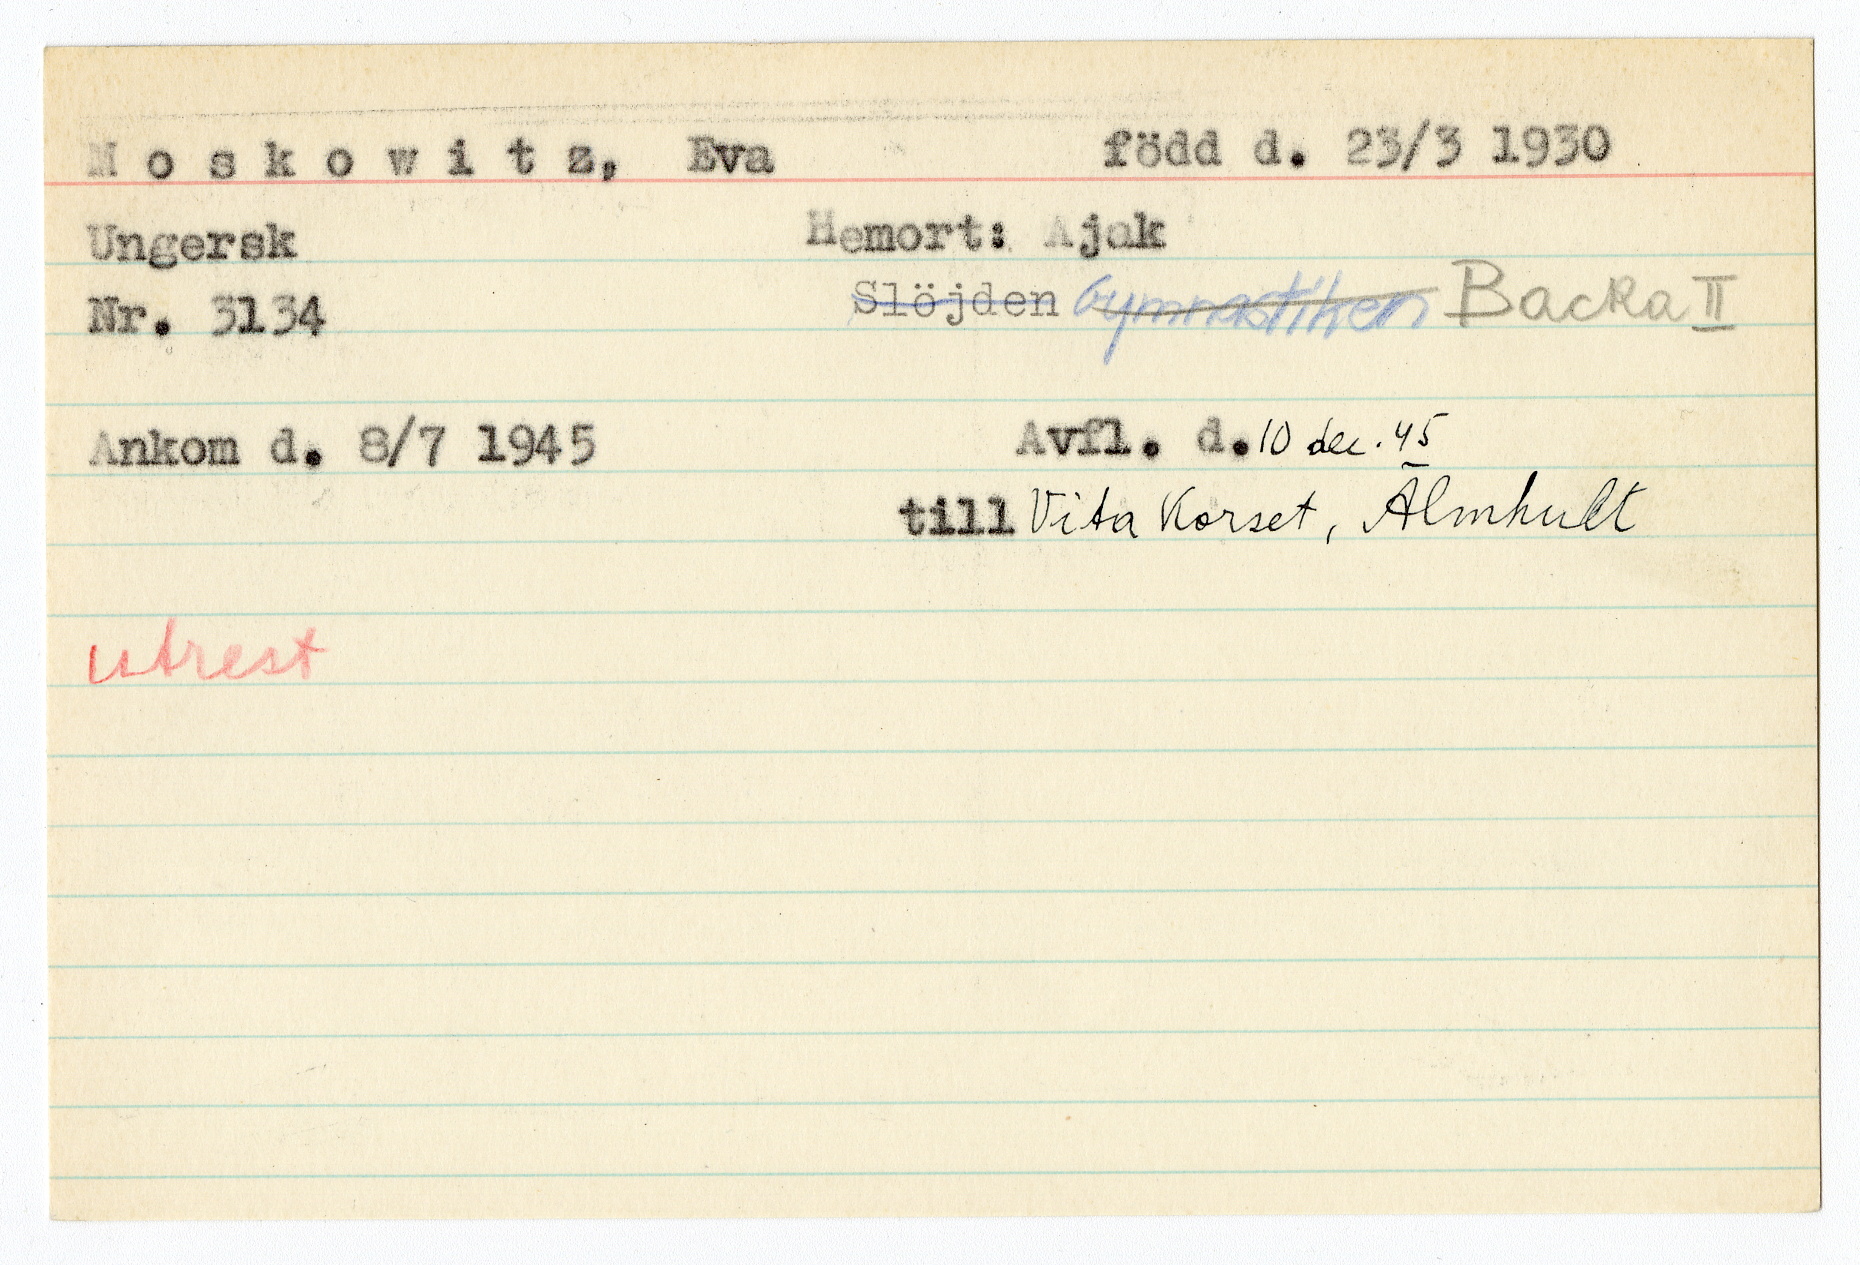 M o s k o w i t z, Eva född d. 23/3 1930
Ungersk Hemort: Ajak
Nr. 3134 Slöjden Gymnastiken Backa II
Ankom d. 8/7 1945 Avfl. d. 10 dec. 45
till Vita Korset, Älmhult
utrest